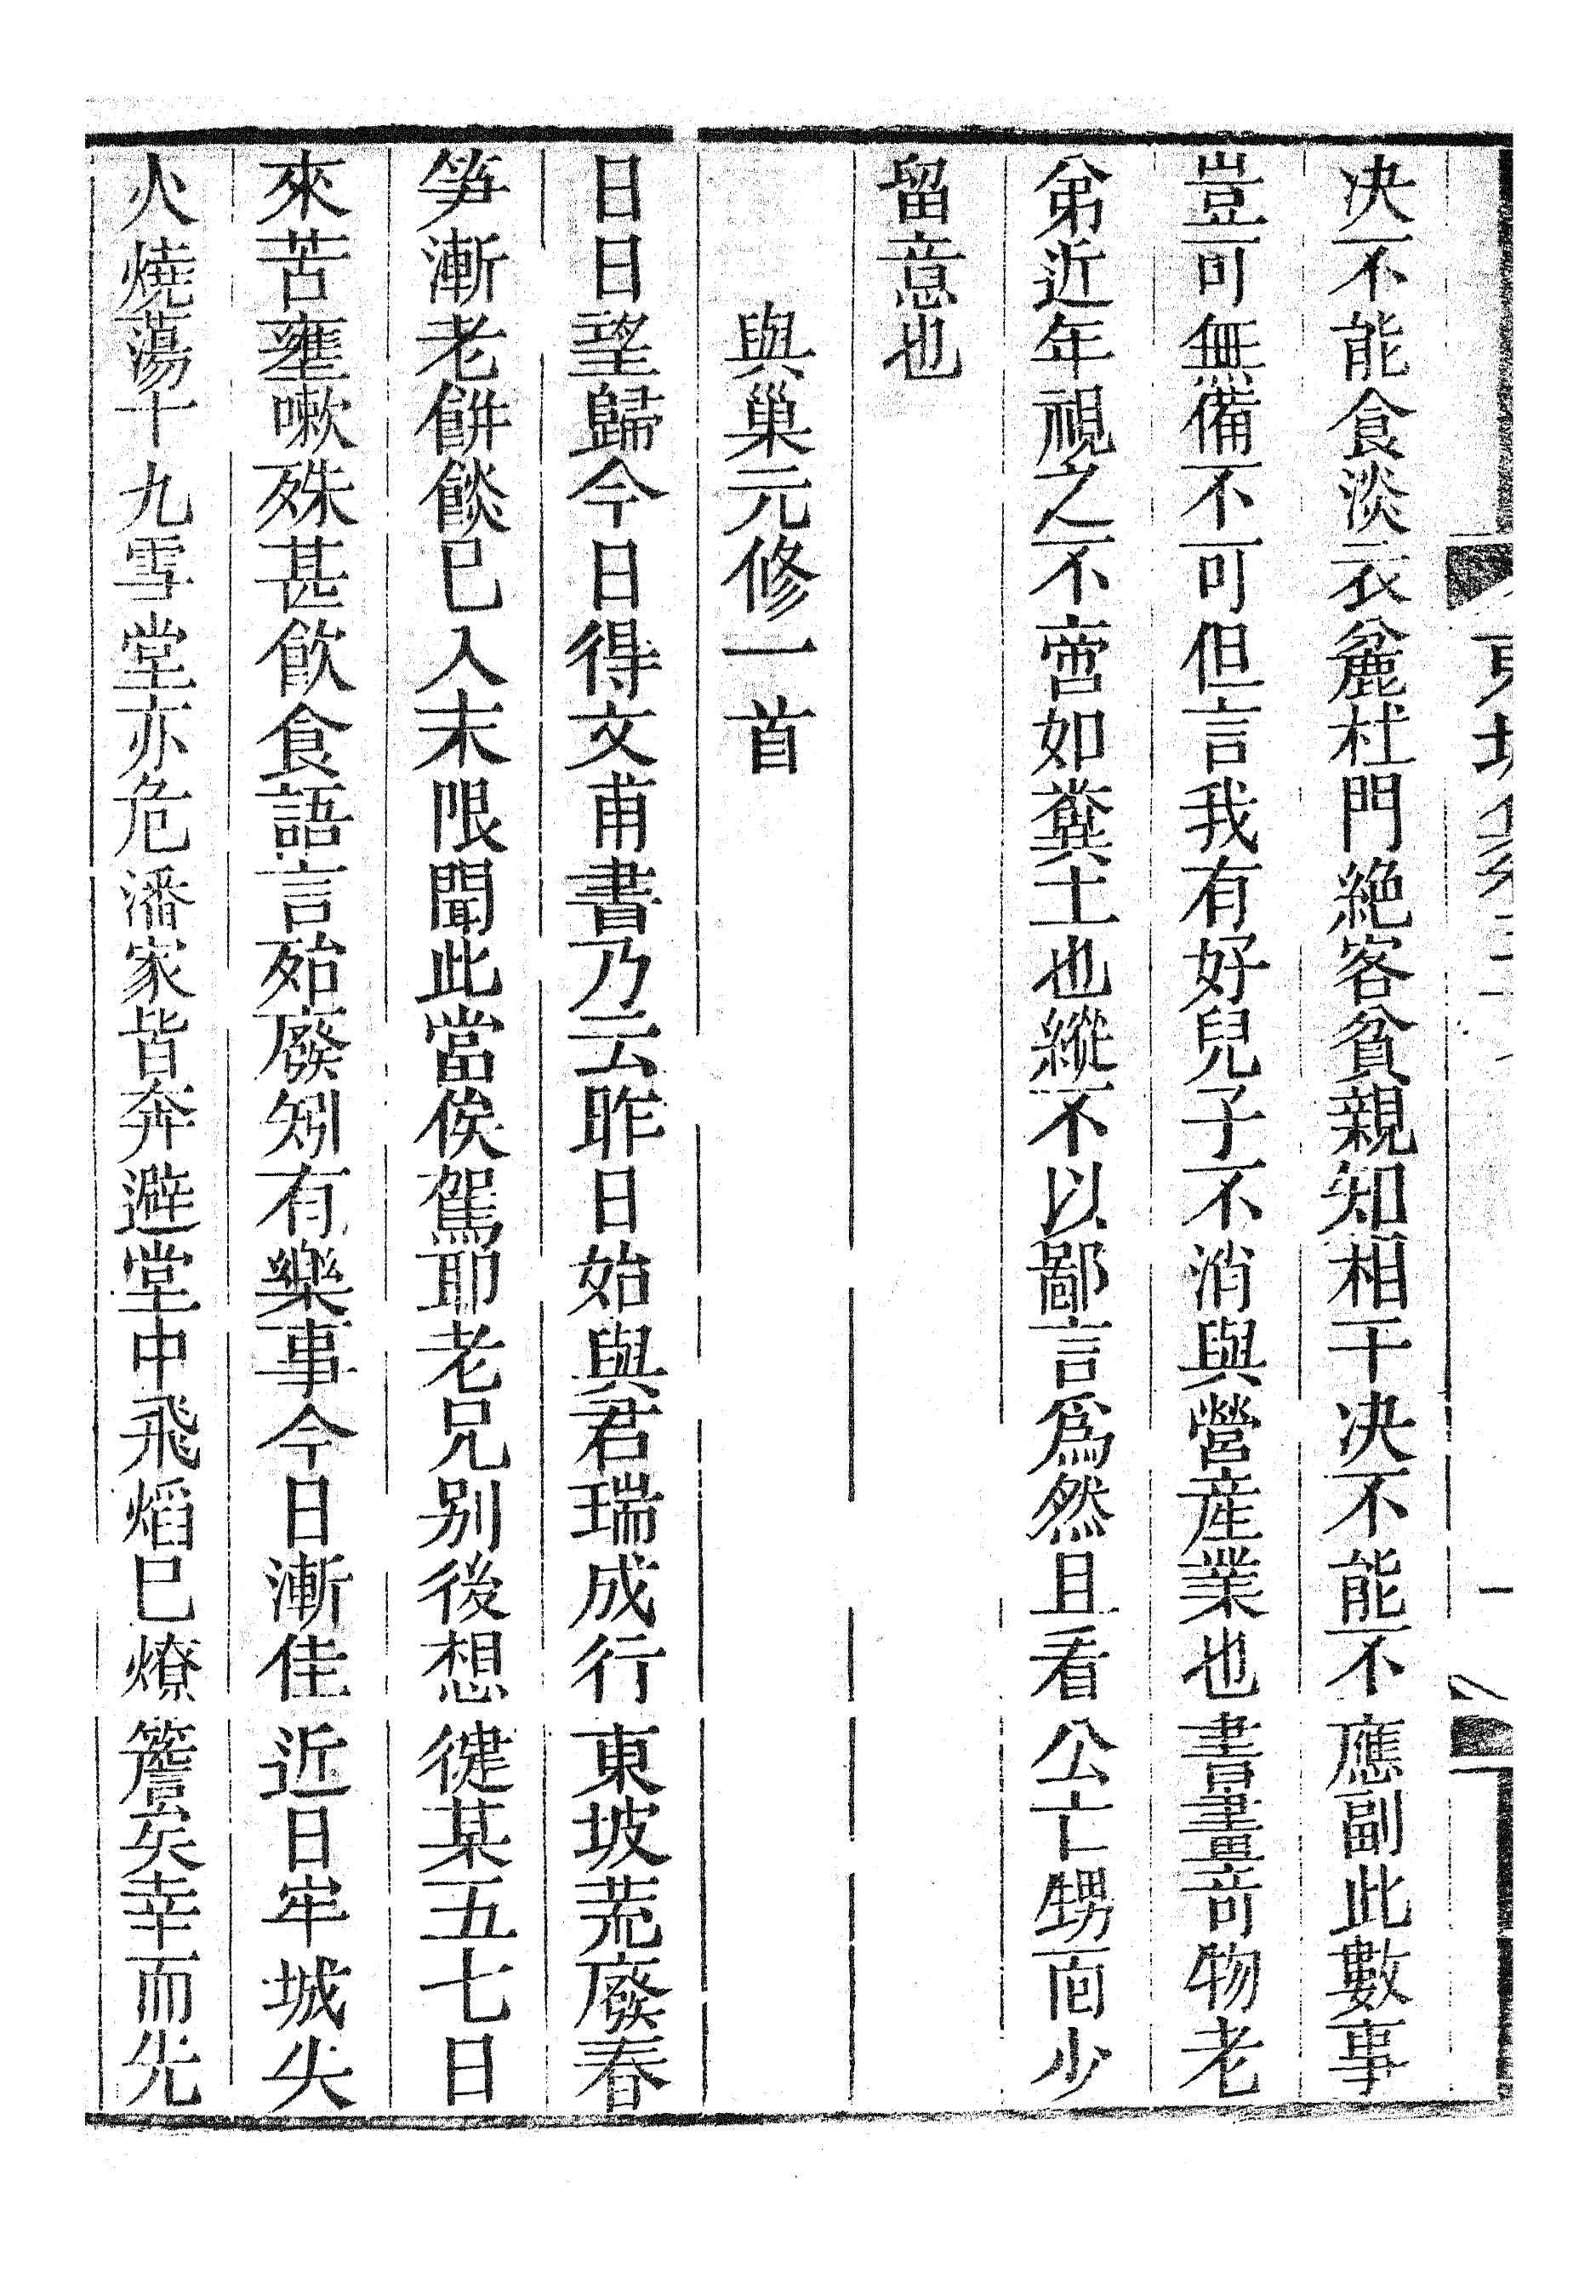 决不能食淡衣麄杜門絶客貧親知相干决不能不應副此數事
豈可無備不可但言我有好兒子不消與營産業也書畫竒物老
弟近年視之不啻如糞土也縱不以鄙言爲然且看公亡甥面少
留意也
與巢元修一首
日日望歸今日得文甫書乃云昨日始與君瑞成行東坡荒廢春
笋漸老餅餤已入末限聞此當俟駕耶老兄别後想徤某五七日
來苦壅嗽殊甚飲食語言殆廢矧有樂事今日漸佳近日牢城失
火燒蕩十九雪堂亦危潘家皆奔避堂中飛焰已燎簷矣幸而先